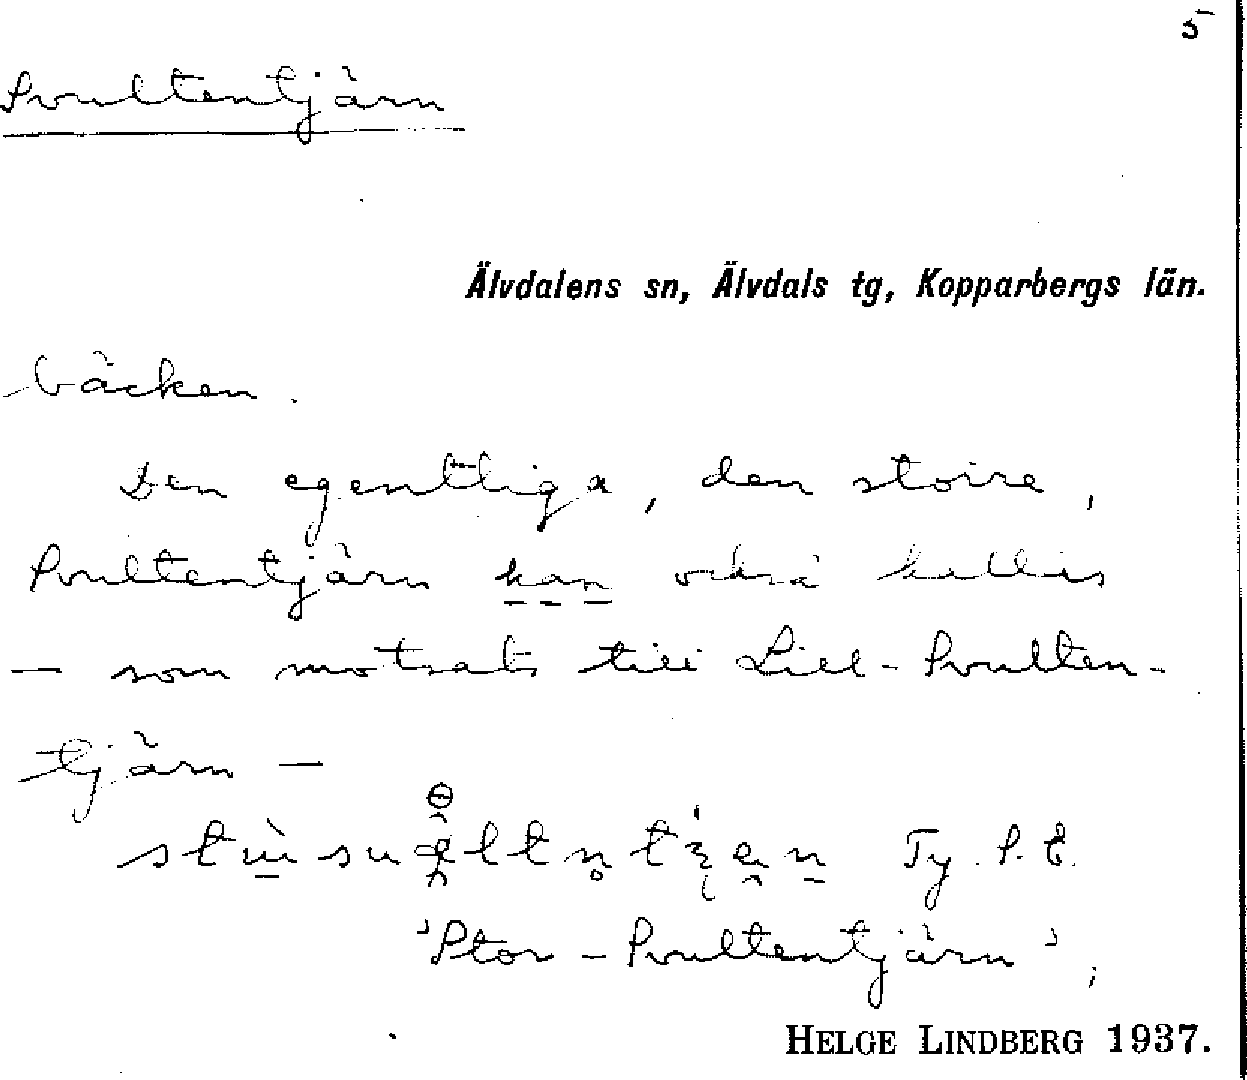 5
Svultentjärn
Älvdalens sn, Älvdals tg, Kopparbergs län.
bäcken.
Den egentliga, den större,
Svultentjärn kan också kallas
— som motsats till Lill-Svulten-
tjärn —
Ty. S. E.
'Stor-Svultentjärn',
HELGE LINDBERG 1937.